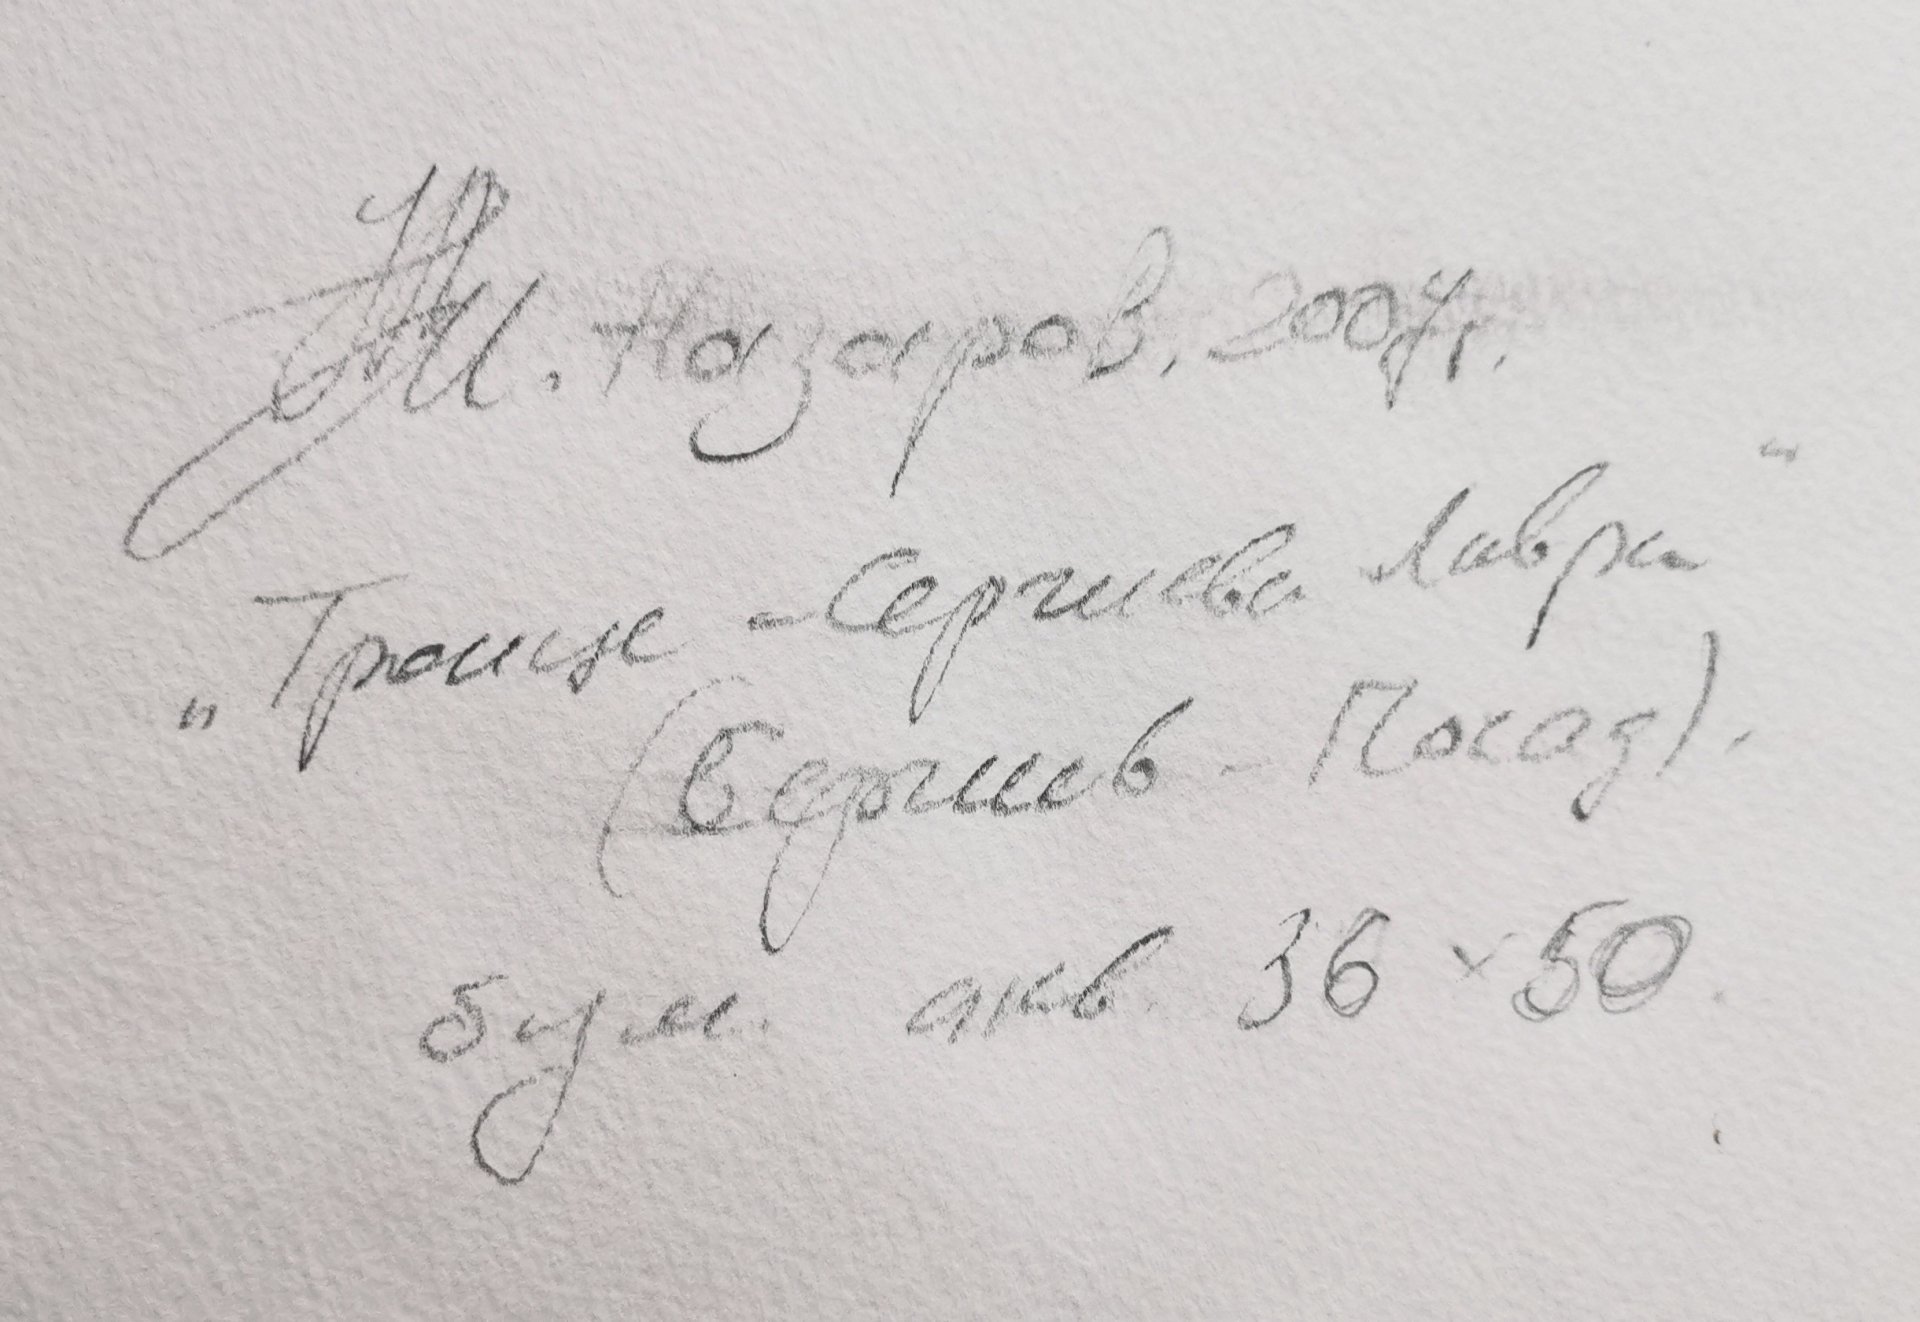 И. Назаров. 2004г.
„Троице - Сергиева Лавра"
(Сергиев - Посад).
бум. акв. 36 × 50.